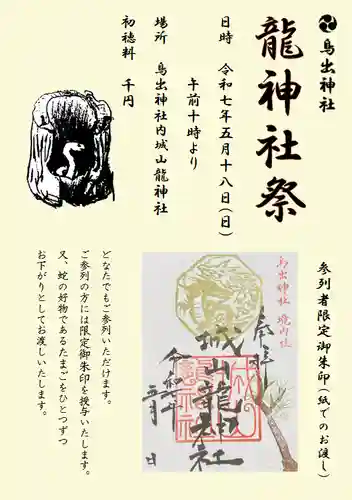 鳥出神社
龍神社祭
日時　令和七年五月十八日(日)
午前十時より
場所　鳥出神社内城山龍神社
初穂料　千円
参列者限定御朱印(紙でのお渡し)
鳥出神社　境内社
奉拝
城山龍神社
令和七年
五月　日
どなたでもご参列いただけます。
ご参列の方には限定御朱印を授与いたします。
又、蛇の好物であるたまごをひとつずつ
お下がりとしてお渡しいたします。